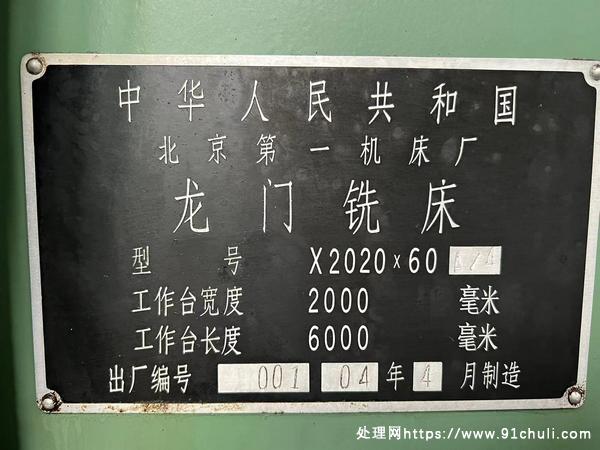 中华人民共和国
北京第一机床厂
龙门铣床
型号 X2020×60 A/4
工作台宽度 2000 毫米
工作台长度 6000 毫米
出厂编号 001 04年4月制造
处理网https://www.91chuli.com/